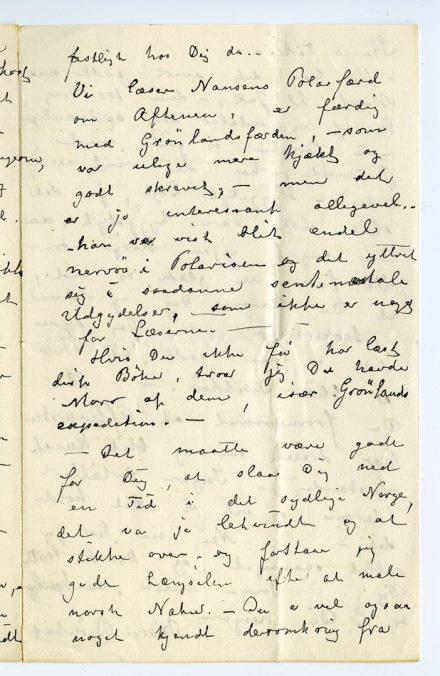 festligh hos Dig da. –
Vi læser Nansens Polarfærd
om Aftenen, er færdig
med Grønlandsfærden, – som
var ulige mere kjækt og
godt skrevet, – men det
er jo interessant allegevel. –
– han var vist blit endel
nervøs i Polarisen og det yttret
sig i saadanne sentimentale
Udgydelser, – som ikke er noget
for Læserne. – –
Hvis Du ikke før har læst
disse Bøker, troer jeg Du havde
Moro af dem, især Grønlands
expedition. –
– Det maatte være godt
for Dig, at slaa Dig ned
en Tid i det sydlige Norge,
det var jo bekvemt og at
stikke over. og forstaar jeg
godt Længselen efter at male
norsk Natur. – Du er vel ogsaa
noget kjendt deromkring fra